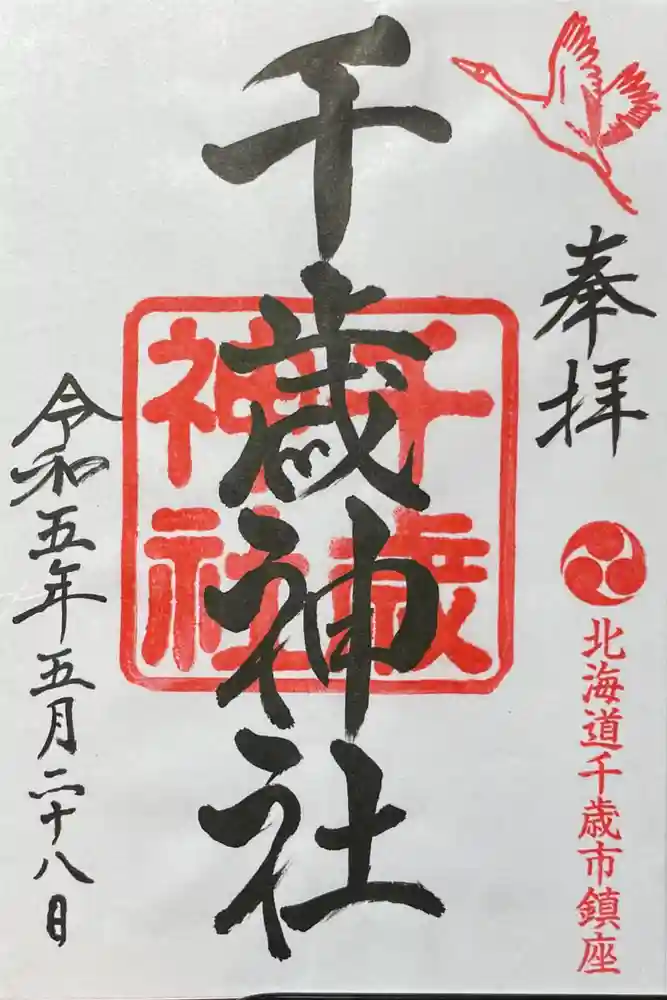 奉拝
北海道千歳市鎮座
千歳神社
千歳
神社
令和五年五月二十八日